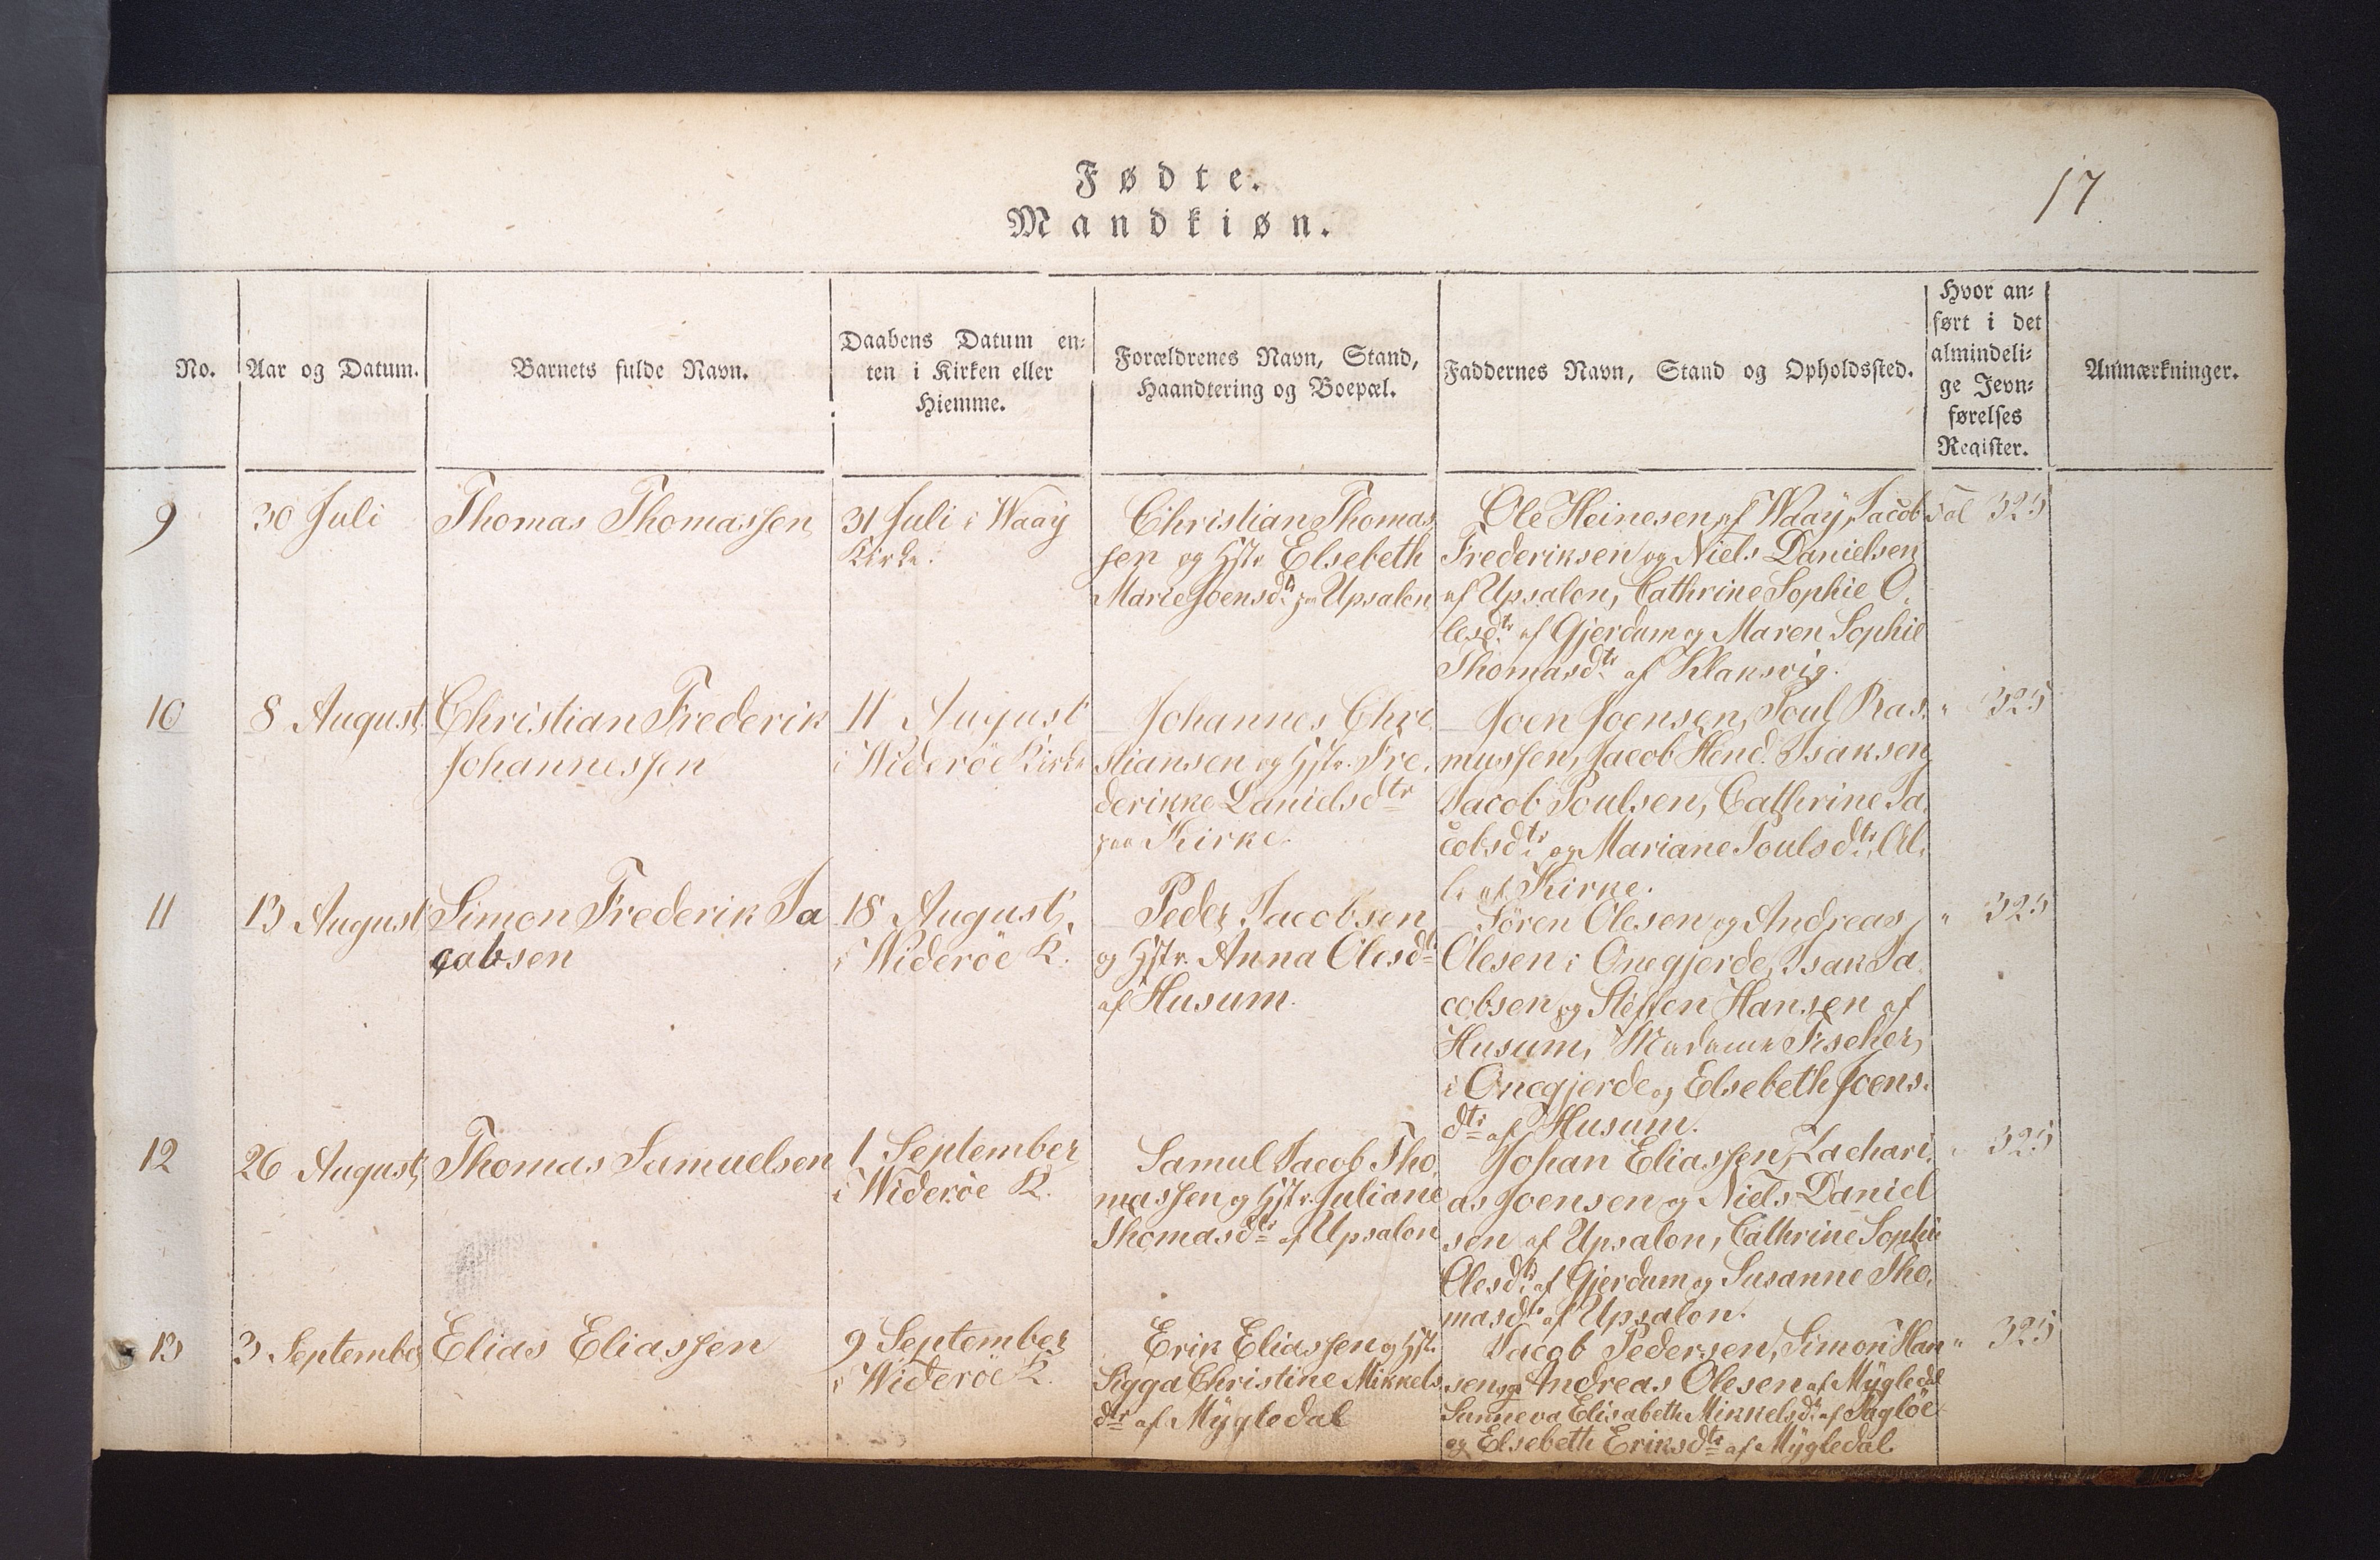 Fødte.
Mandkiøn.
17
No.
Aar og Datum.
Barnets fulde Navn.
Daabens Datum en-
ten i Kirken eller
Hiemme.
Forældrenes Navn, Stand,
Haandtering og Boepæl.
Faddernes Navn, Stand og Opholdssted.
Hvor an-
ført i det
almindeli-
ge Jevn-
førelses
Register.
Anmærkninger.
9
30 Juli
Thomas Thomassen
31 Juli i Waaÿ
Kirke.
Christian Thomas
sen og Hstr Elsebeth
Marie Joensdtr paa Upsalon
Ole Heinesen af Waaÿ, Jacob
Frederiksen og Niels Danielsen
af Upsalon, Cathrine Sophie O.
lesdtr af Gjerdum og Maren Sophie
Thomasdtr af Klaksvig.
Fol 325
10
8 August
Christian Frederik
Johannessen
11 August
i Wideröe Kirke
Johannes Chri
stiansen og Hstr. Fre.
derikke Danielsdtr
paa Kirke
Joen Joensen, Poul Ras.
mussen, Jacob Hend. Isaksen
Jacob Poulsen, Cathrine Ja
cobsdtr og Mariane Poulsdtr, Al.
le af Kirke.
" 325
11
13 August
Simon Frederik Ja
cobsen
18 August
i Wideröe K.
Peder Jacobsen
og Hstr. Anna Olesdtr
af Husum.
Sören Olesen og Andreas
Olesen i Onegjerde, Isak Ja
cobsen og Steffen Hansen af
Husum, Madame Fischer,
i Onegjerde og Elsebeth Joens.
dtr af Husum.
" 325
12
26 August
Thomas Samuelsen
1 September
i Wideröe K.
Samul Jacob Tho
massen og Hstr. Juliane
Thomasdtr af Upsalon
Johan Eliassen, Zachari.
as Joensen og Niels Daniel
sen af Upsalon, Cathrine Sophie
Olesdtr af Gjerdum og Susanne Tho.
masdtr af Upsalon.
" 325
13
3 September
Elias Eliassen
9 September
i Wideröe K.
Erik Eliassen og Hstr.
Sigga Christine Mikkels
dtr af Mÿgledal
Jacob Pedersen, Simon Han
sen og Andreas Olesen af Mÿgledal
Sunneva Elisabeth Mikkelsdtr af
og Elsebeth Eriksdtr af Mÿgledal.
" 325